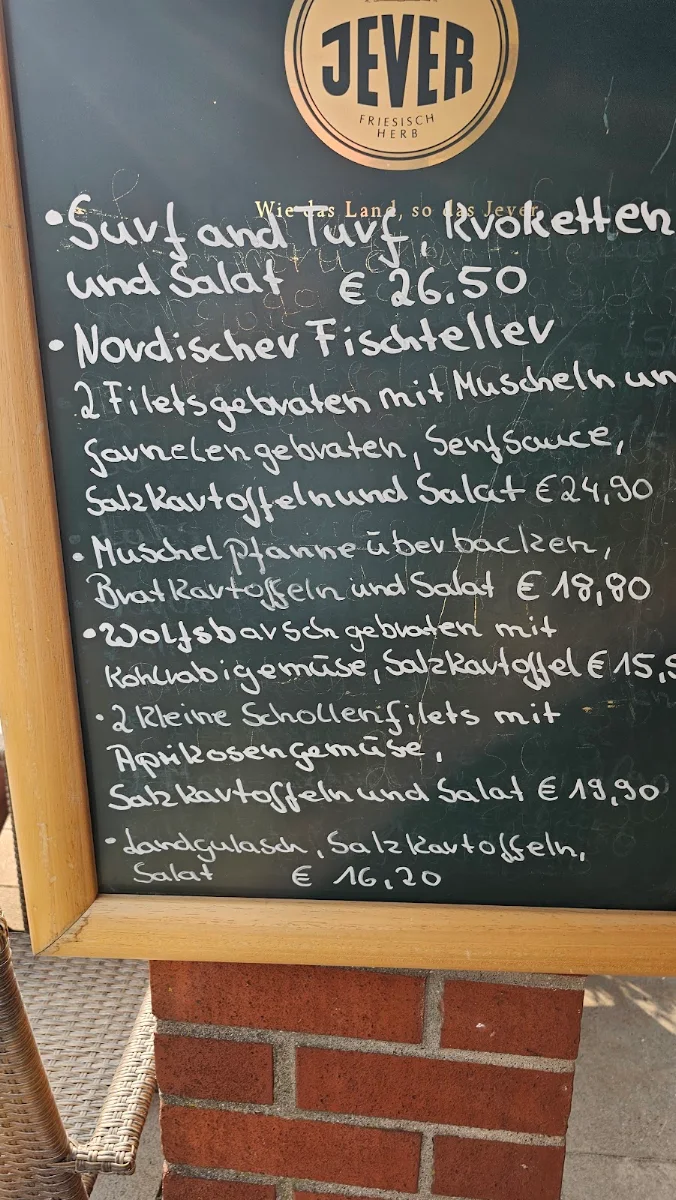 JEVER
FRIESISCH
HERB
Wie das Land, so das Jever
• Surf and Turf, Kroketten
und Salat € 26.50
• Nordischer Fischteller
2 Filets gebraten mit Muscheln un
Garnelen gebraten, Senfsauce,
Salzkartoffeln und Salat € 24,90
• Muschelpfanne überbacken,
Bratkartoffeln und Salat € 18,80
• Wolfsbarsch gebraten mit
Kohlrabigemüse, Salzkartoffel € 15,9
• 2 kleine Schollenfilets mit
Aprikosengemüse,
Salzkartoffeln und Salat € 19,90
• Landgulasch, Salzkartoffeln,
Salat € 16,20